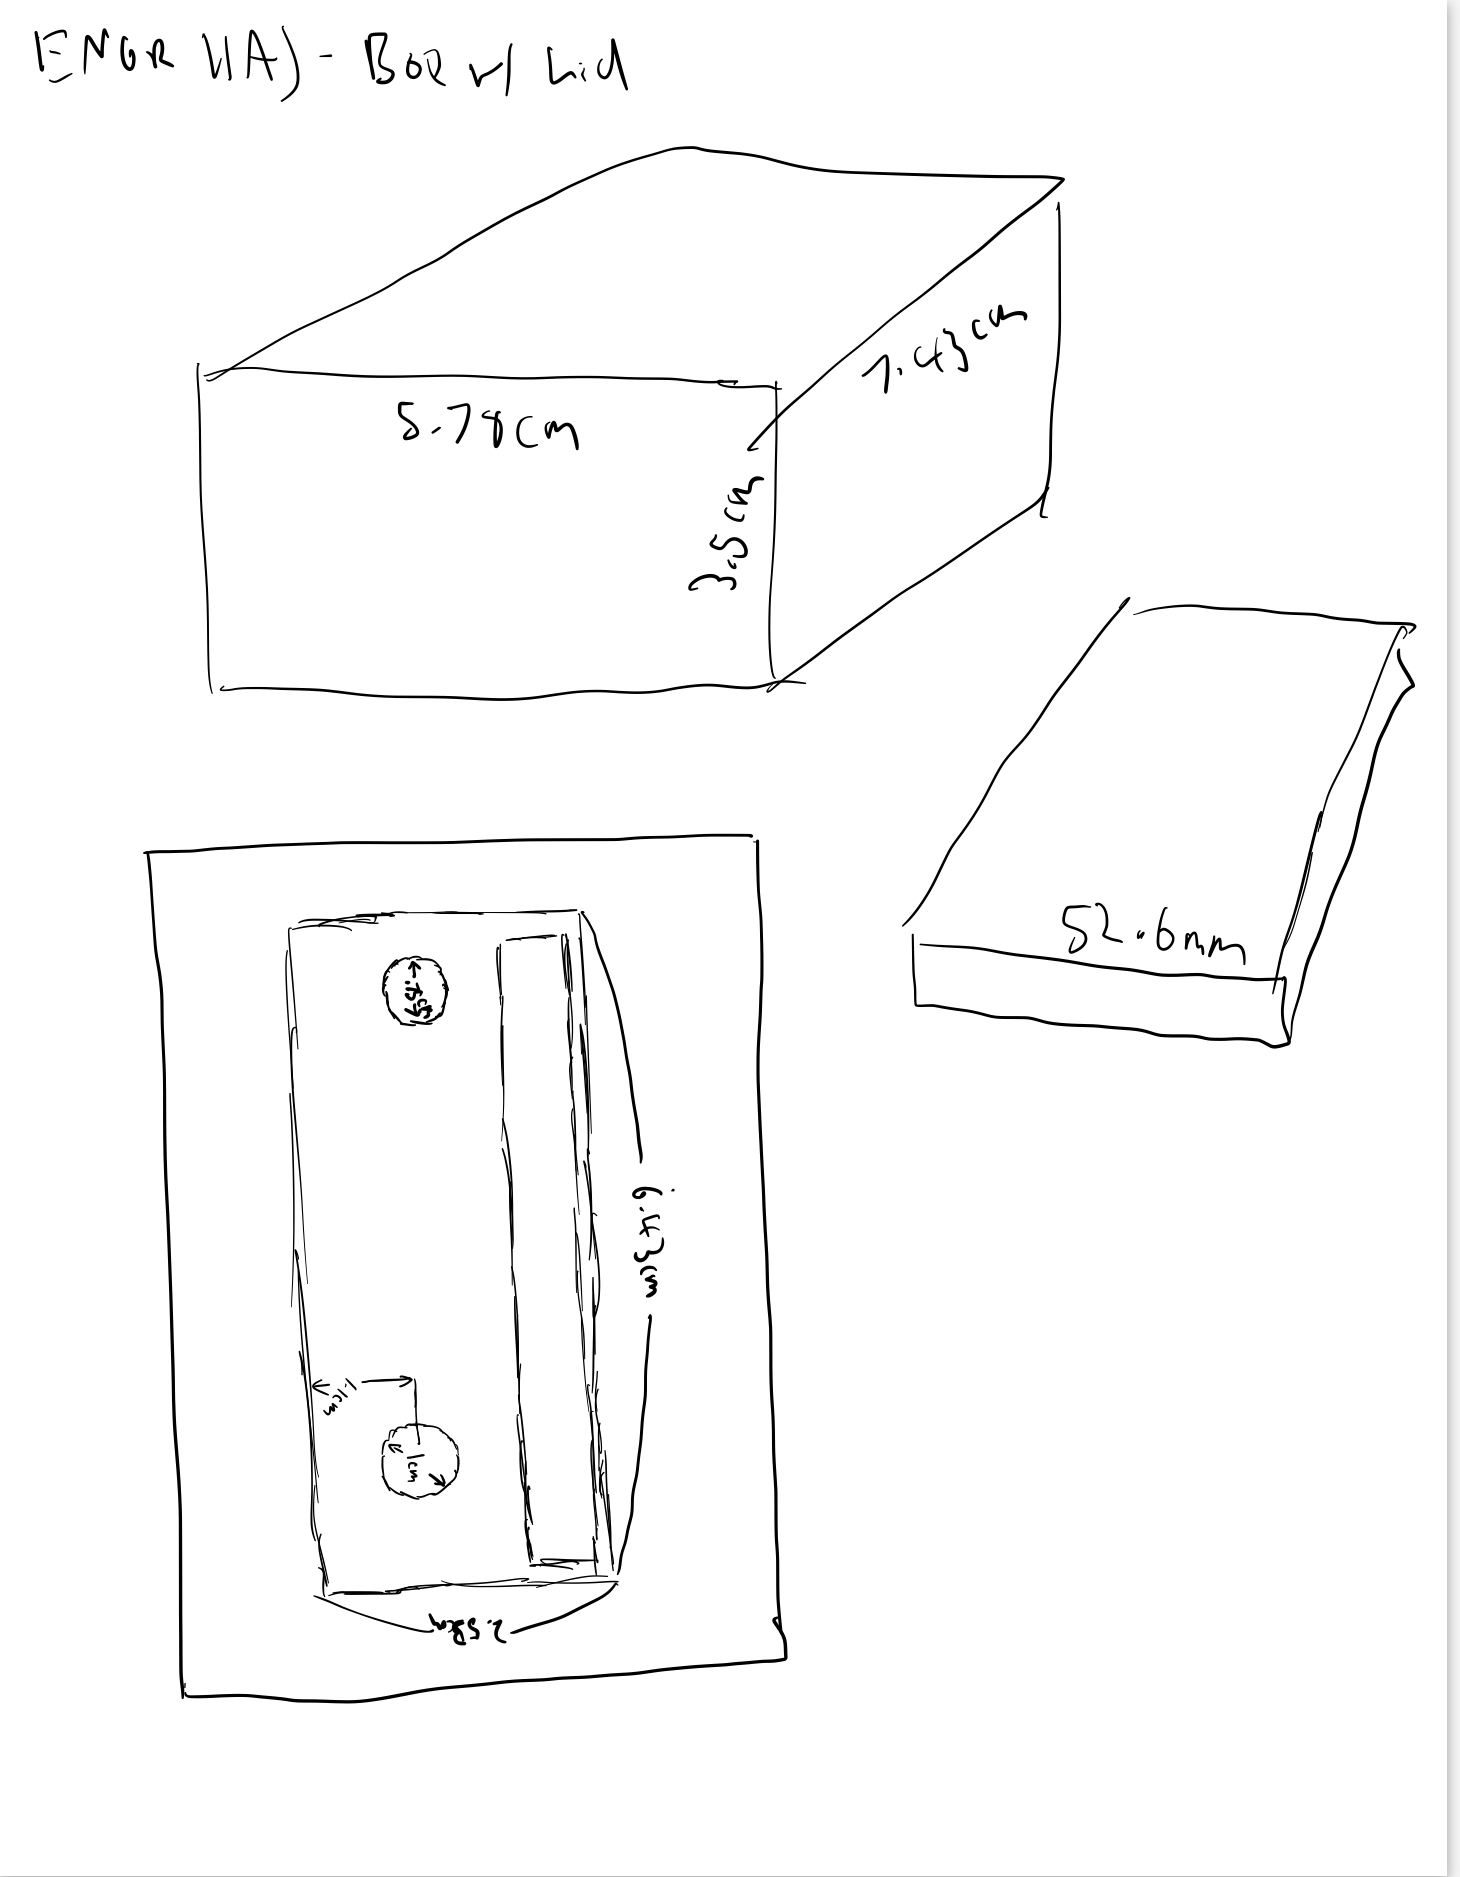 ENGR 11A) - Box w/ Lid
5.78cm
7.43cm
3.5cm
52.6mm
.75cm
6.43cm
1.1cm
1cm
2.58cm